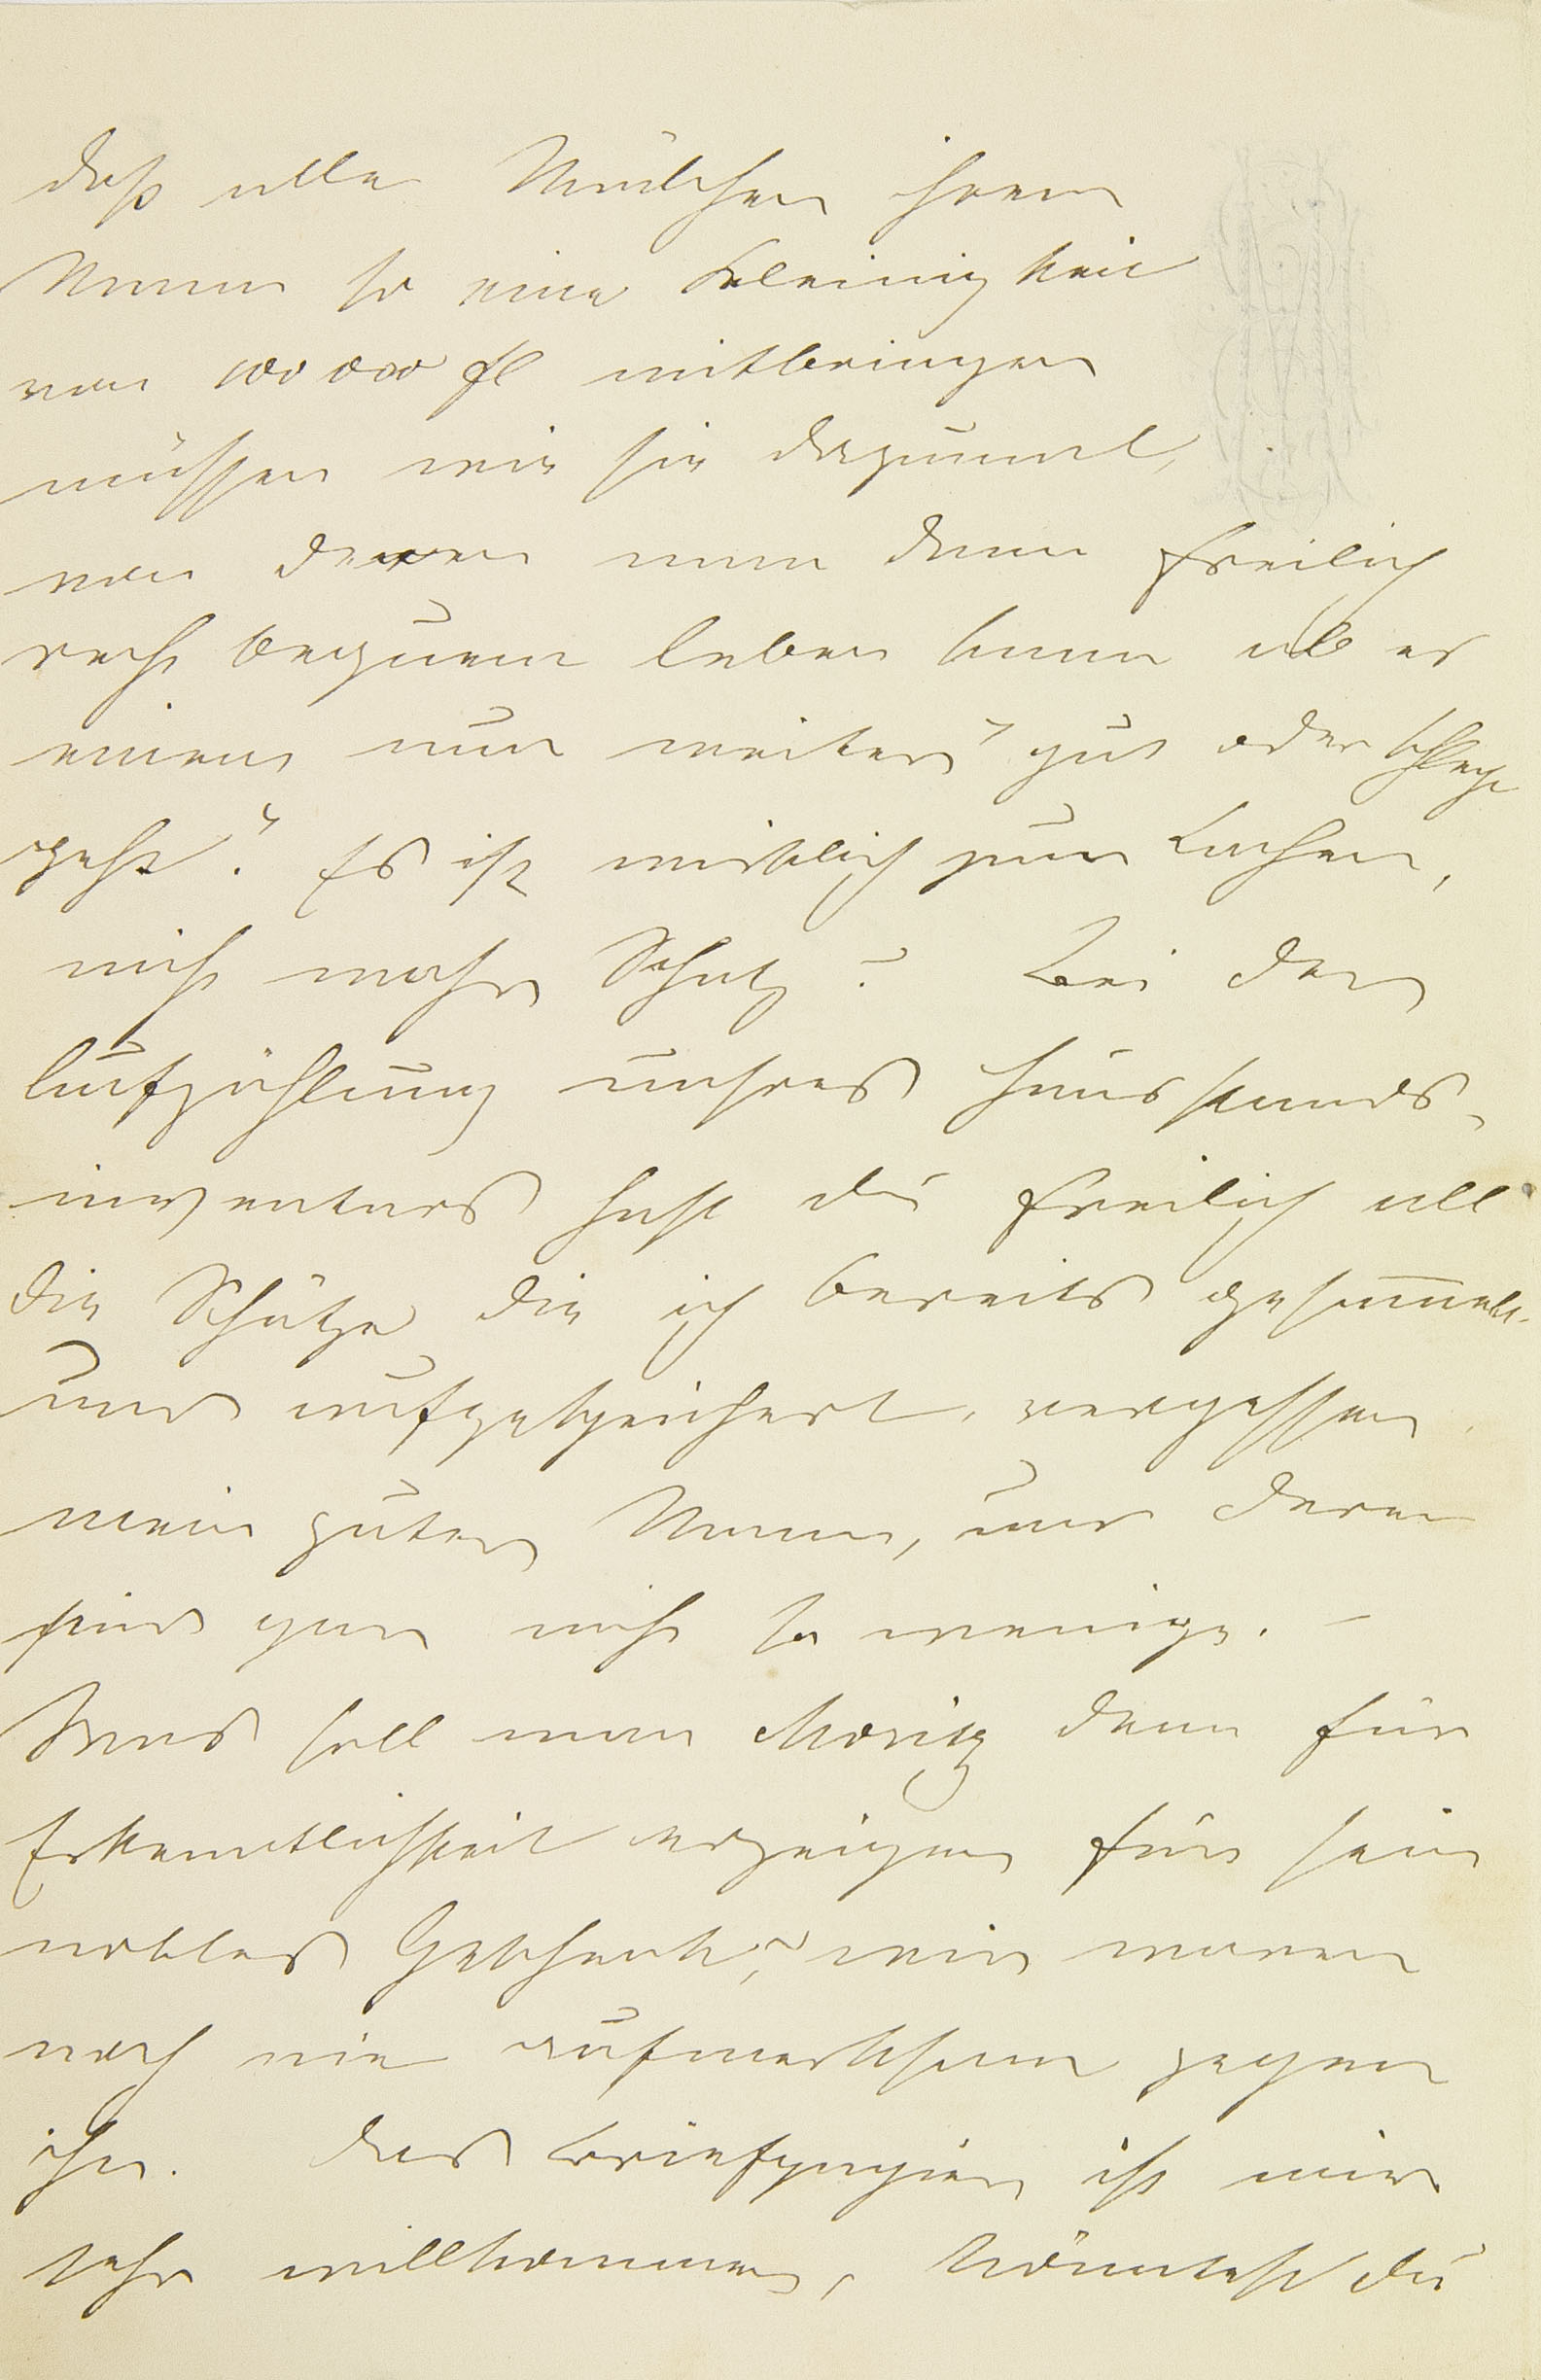 daß alle Mädchen ihrem
Mann so eine Kleinigkeit
von 100 000 fl mitbringen
müssen wie sie dazumal,
von denen man dann freilich
recht bequem leben kann ob es
einem nun weiters gut oder schlecht
geht? Es ist wirklich zum Lachen,
nicht wahr Schatz? Bei der
Aufzählung unsres Hausstands-
inventars hast du freilich all
die Schätze die ich bereits gesammelt
und aufgespeichert, vergessen
mein guter Mann, und deren
sind gar nicht so wenige. –
Was soll man Moritz denn für
Erkenntlichkeit erzeigen für sein
nobles Geschenk? wir waren
noch nie aufmerksam gegen
ihn. Das Briefpapier ist mir
sehr willkommen, könntest du